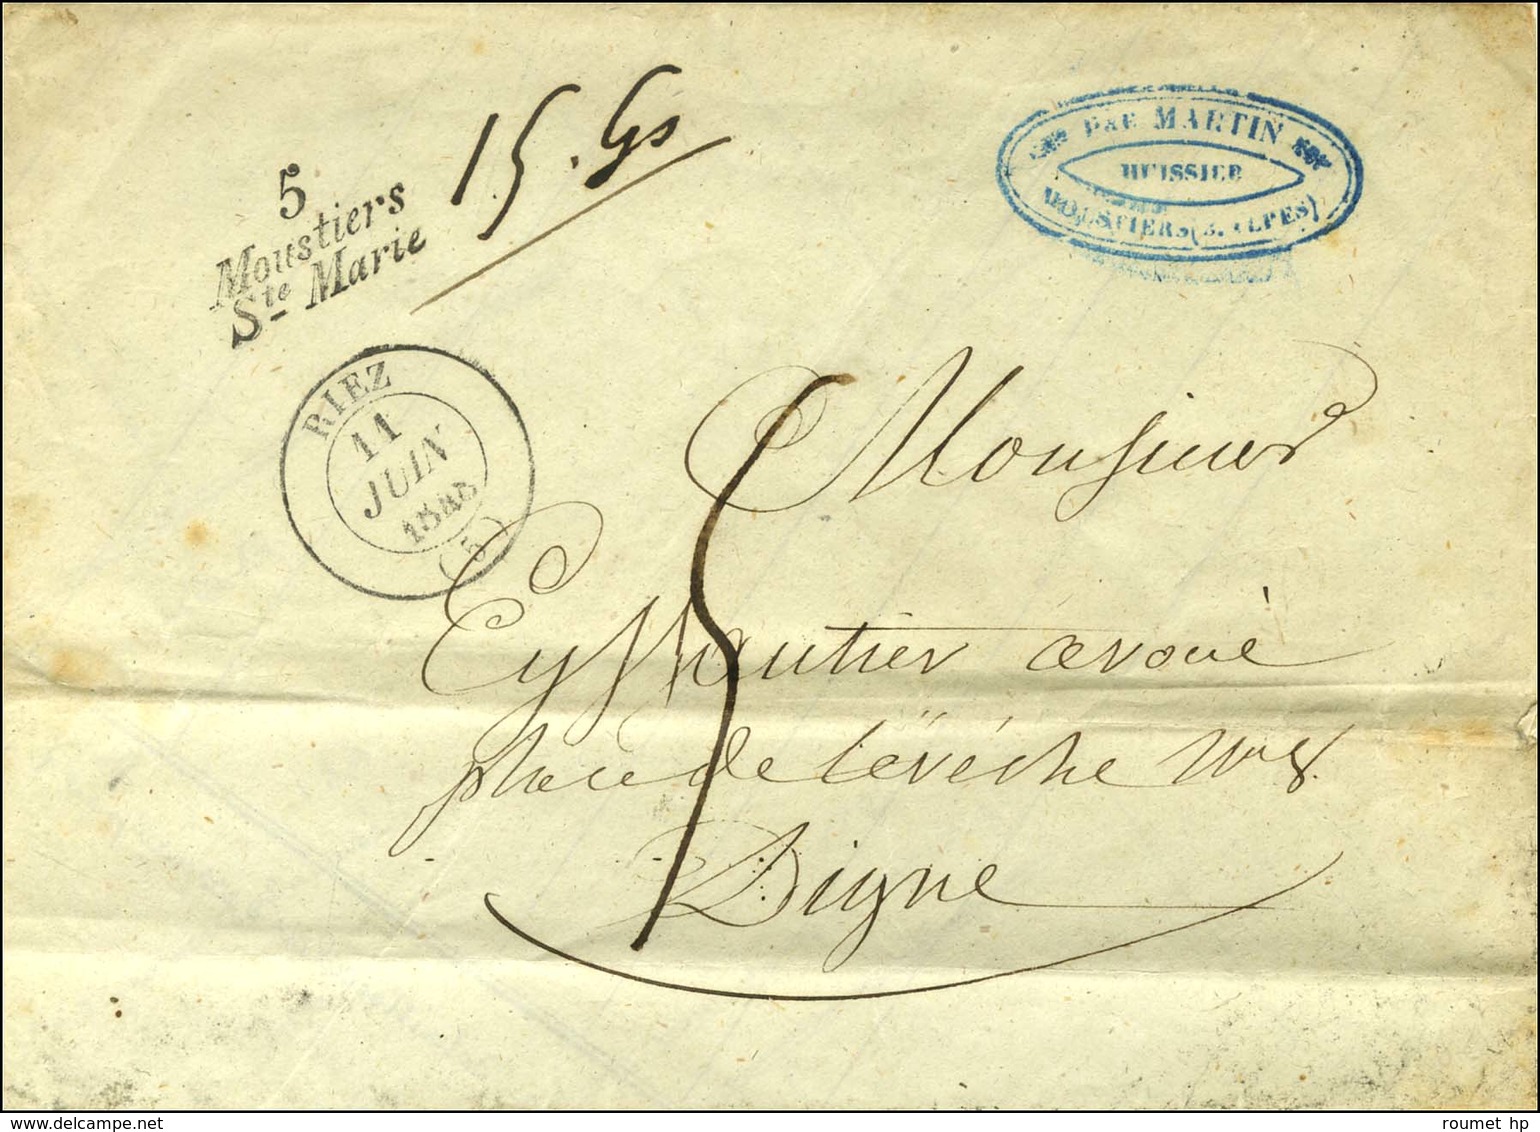 15. Gs
5
Moustiers
Ste Marie
MARTIN
HUISSIER
MOUSTIERS (B. ALPES)
RIEZ
11
JUIN
1848
(5)
5
Monsieur
Eyssautier avoué
place de l'évêché
Digne
www.delcampe.net
roumet hp